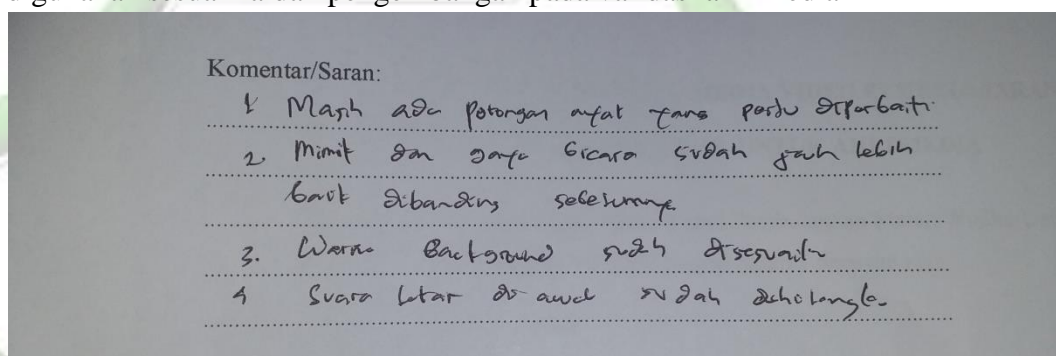 Komentar/Saran:
1 Masih ada potongan ayat yang perlu diperbaiki.
2. Mimik dan gaya bicara sudah jauh lebih
baik dibanding sebelumnya
3. Warna Background sudah disesuaikan
4 Suara latar di awal sudah dihilangkan